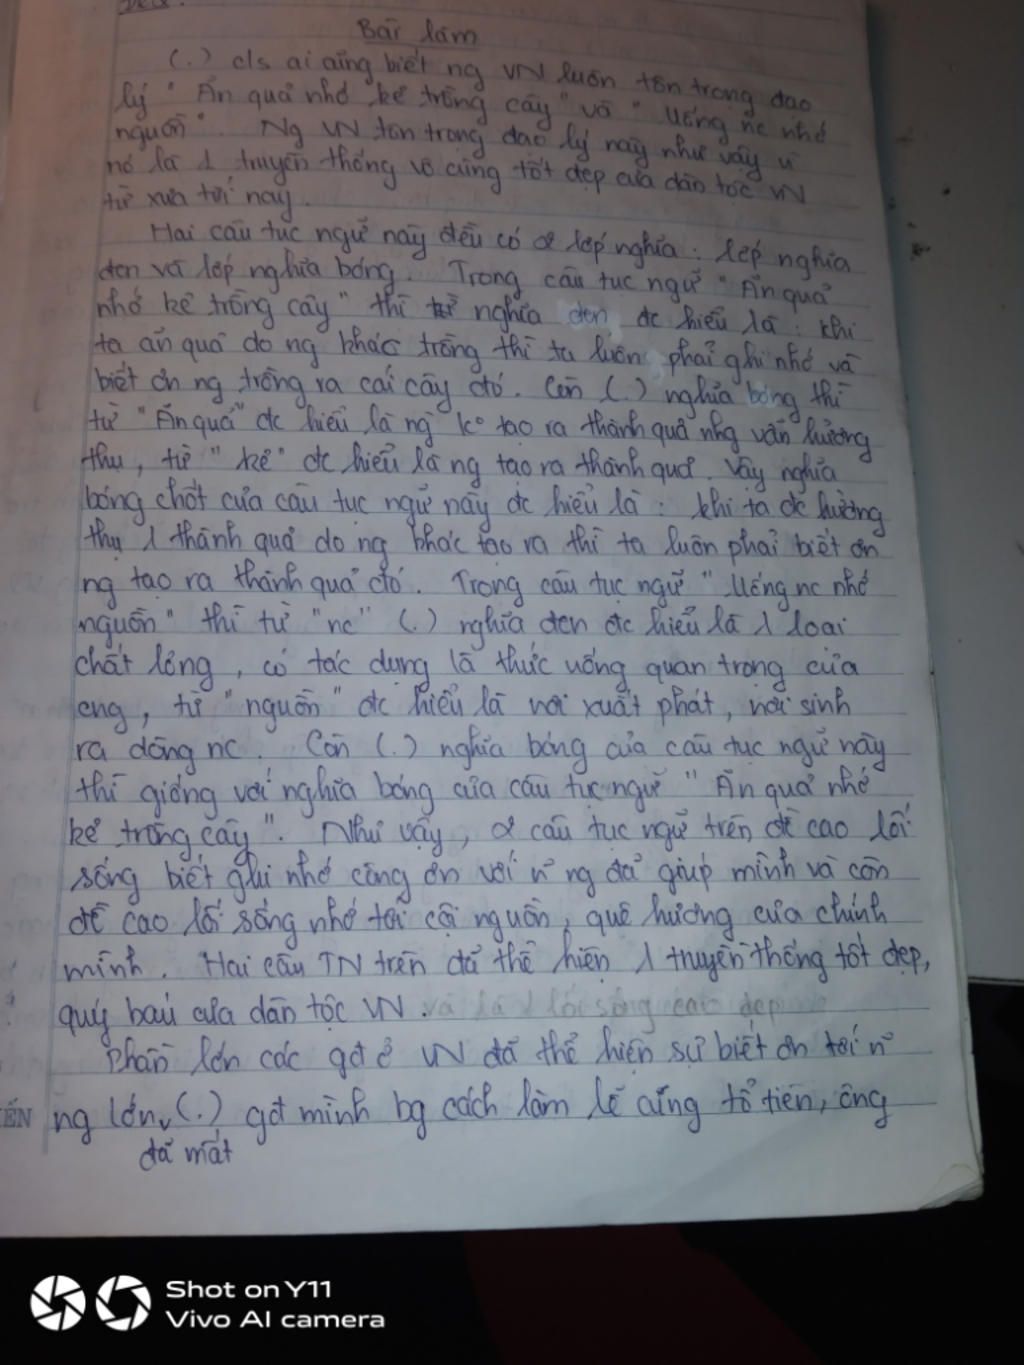 Bài làm
(.) c/s ai cũng biết ng VN luôn tôn trọng đạo
lý "Ăn quả nhớ kẻ trồng cây" và "Uống nc nhớ
nguồn". Ng VN tôn trọng đạo lý này như vậy vì
nó là 1 truyền thống vô cùng tốt đẹp của dân tộc VN
từ xưa tới nay.
Hai câu tục ngữ này đều có 2 lớp nghĩa: lớp nghĩa
đen và lớp nghĩa bóng. Trong câu tục ngữ "Ăn quả
nhớ kẻ trồng cây" thì nghĩa đen đc hiểu là: khi
ta ăn quả do ng khác trồng thì ta luôn phải ghi nhớ và
biết ơn ng trồng ra cái cây đó. Còn (.) nghĩa bóng thì
từ "Ăn quả" đc hiểu là ng ko tạo ra thành quả nhg vẫn hưởng
thụ, từ "kẻ" đc hiểu là ng tạo ra thành quả. Vậy nghĩa
bóng chốt của câu tục ngữ này đc hiểu là: khi ta đc hưởng
thụ 1 thành quả do ng khác tạo ra thì ta luôn phải biết ơn
ng tạo ra thành quả đó. Trong câu tục ngữ "Uống nc nhớ
nguồn" thì từ "nc" (.) nghĩa đen đc hiểu là 1 loại
chất lỏng, có tác dụng là thức uống quan trọng của
cng, từ "nguồn" đc hiểu là nơi xuất phát, nơi sinh
ra dòng nc. Còn (.) nghĩa bóng của câu tục ngữ này
thì giống với nghĩa bóng của câu tục ngữ "Ăn quả nhớ
kẻ trồng cây". Như vậy, 2 câu tục ngữ trên đề cao lối
sống biết ghi nhớ công ơn với n~ ng đã giúp mình và còn
đề cao lối sống nhớ tới cội nguồn, quê hương của chính
mình. Hai câu TN trên đã thể hiện 1 truyền thống tốt đẹp,
quý báu của dân tộc VN. và là 1 lối sống cao đẹp
Phần lớn các gđ ở VN đã thể hiện sự biết ơn tới n~
ng lớn (.) gđ mình bg cách làm lễ cúng tổ tiên, ông
đã mất
Shot on Y11
Vivo AI camera